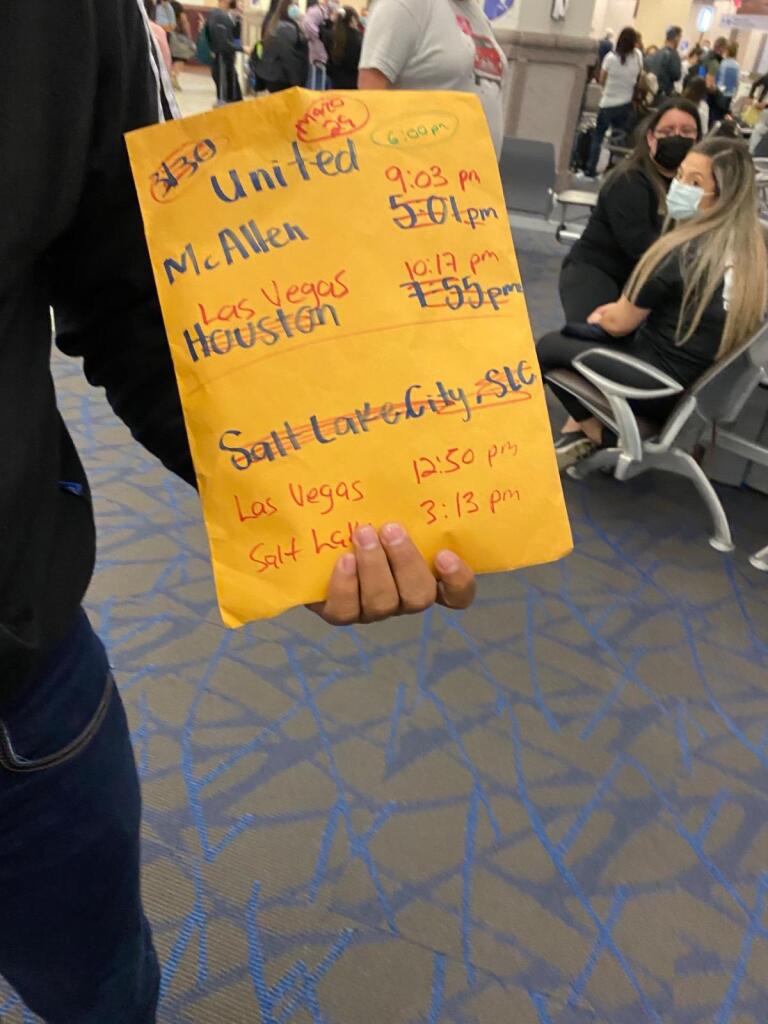 3/30 Marzo 29 6:00pm
United 9:03 pm
McAllen 5:01pm
Las Vegas 10:17 pm
Houston 7:55pm
Salt Lake City, SLC
Las Vegas 12:50 pm
Salt Lak 3:13 pm